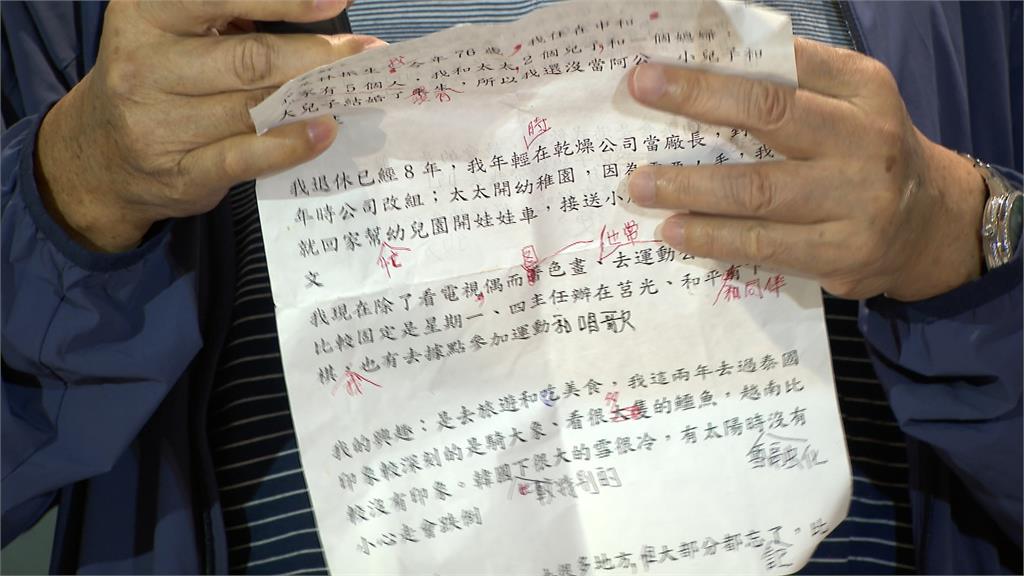 林振生，今年76歲，我住在中和，
家有5個人，我和太太，2個兒子和一個媳婦
大兒子結婚了 ，所以我還沒當阿公，小兒子和
時
我退休已經8年，我年輕在乾燥公司當廠長，
年時公司改組；太太開幼稚園，因為 手，我
就回家幫幼兒園開娃娃車，接送小
忙
他常
文
我現在除了看電視偶而 色畫，去運動公
和同伴
比較固定是星期一、四主任辦在莒光、和平
棋，也有去據點參加運動和唱歌
我
我的興趣：是去旅遊和吃美食，我這兩年去過泰國
印象較深刻的是騎大象、看很大隻的鱷魚，越南比
較沒有印象。韓國下很大的雪很冷，有太陽時沒有
雪會融化
較特別的
小心走會跌倒
很多地方,但大部分都忘了，比
記